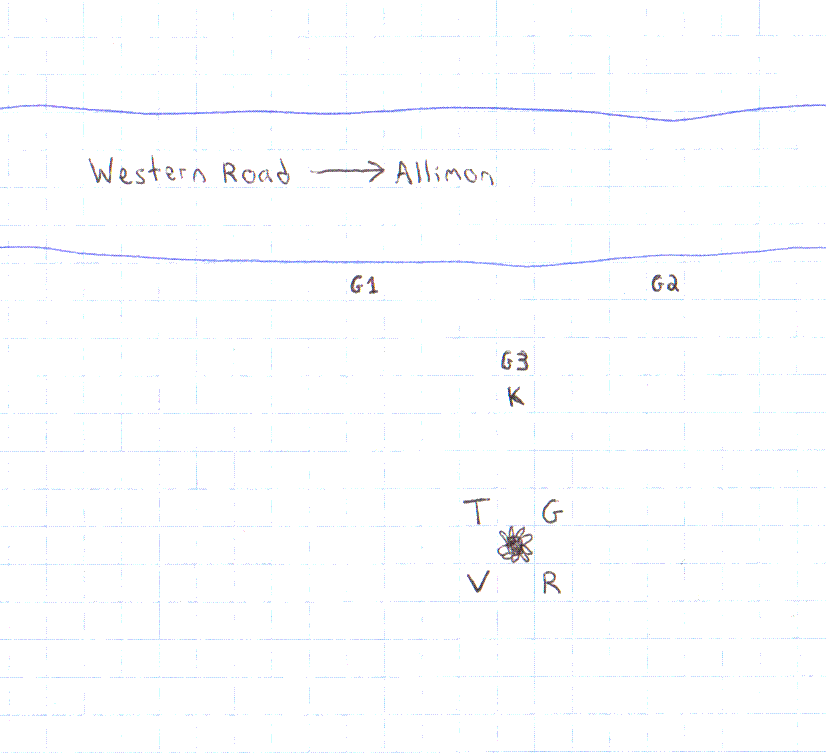 Western Road → Allimon
G1 G2
G3
K
T G
V R